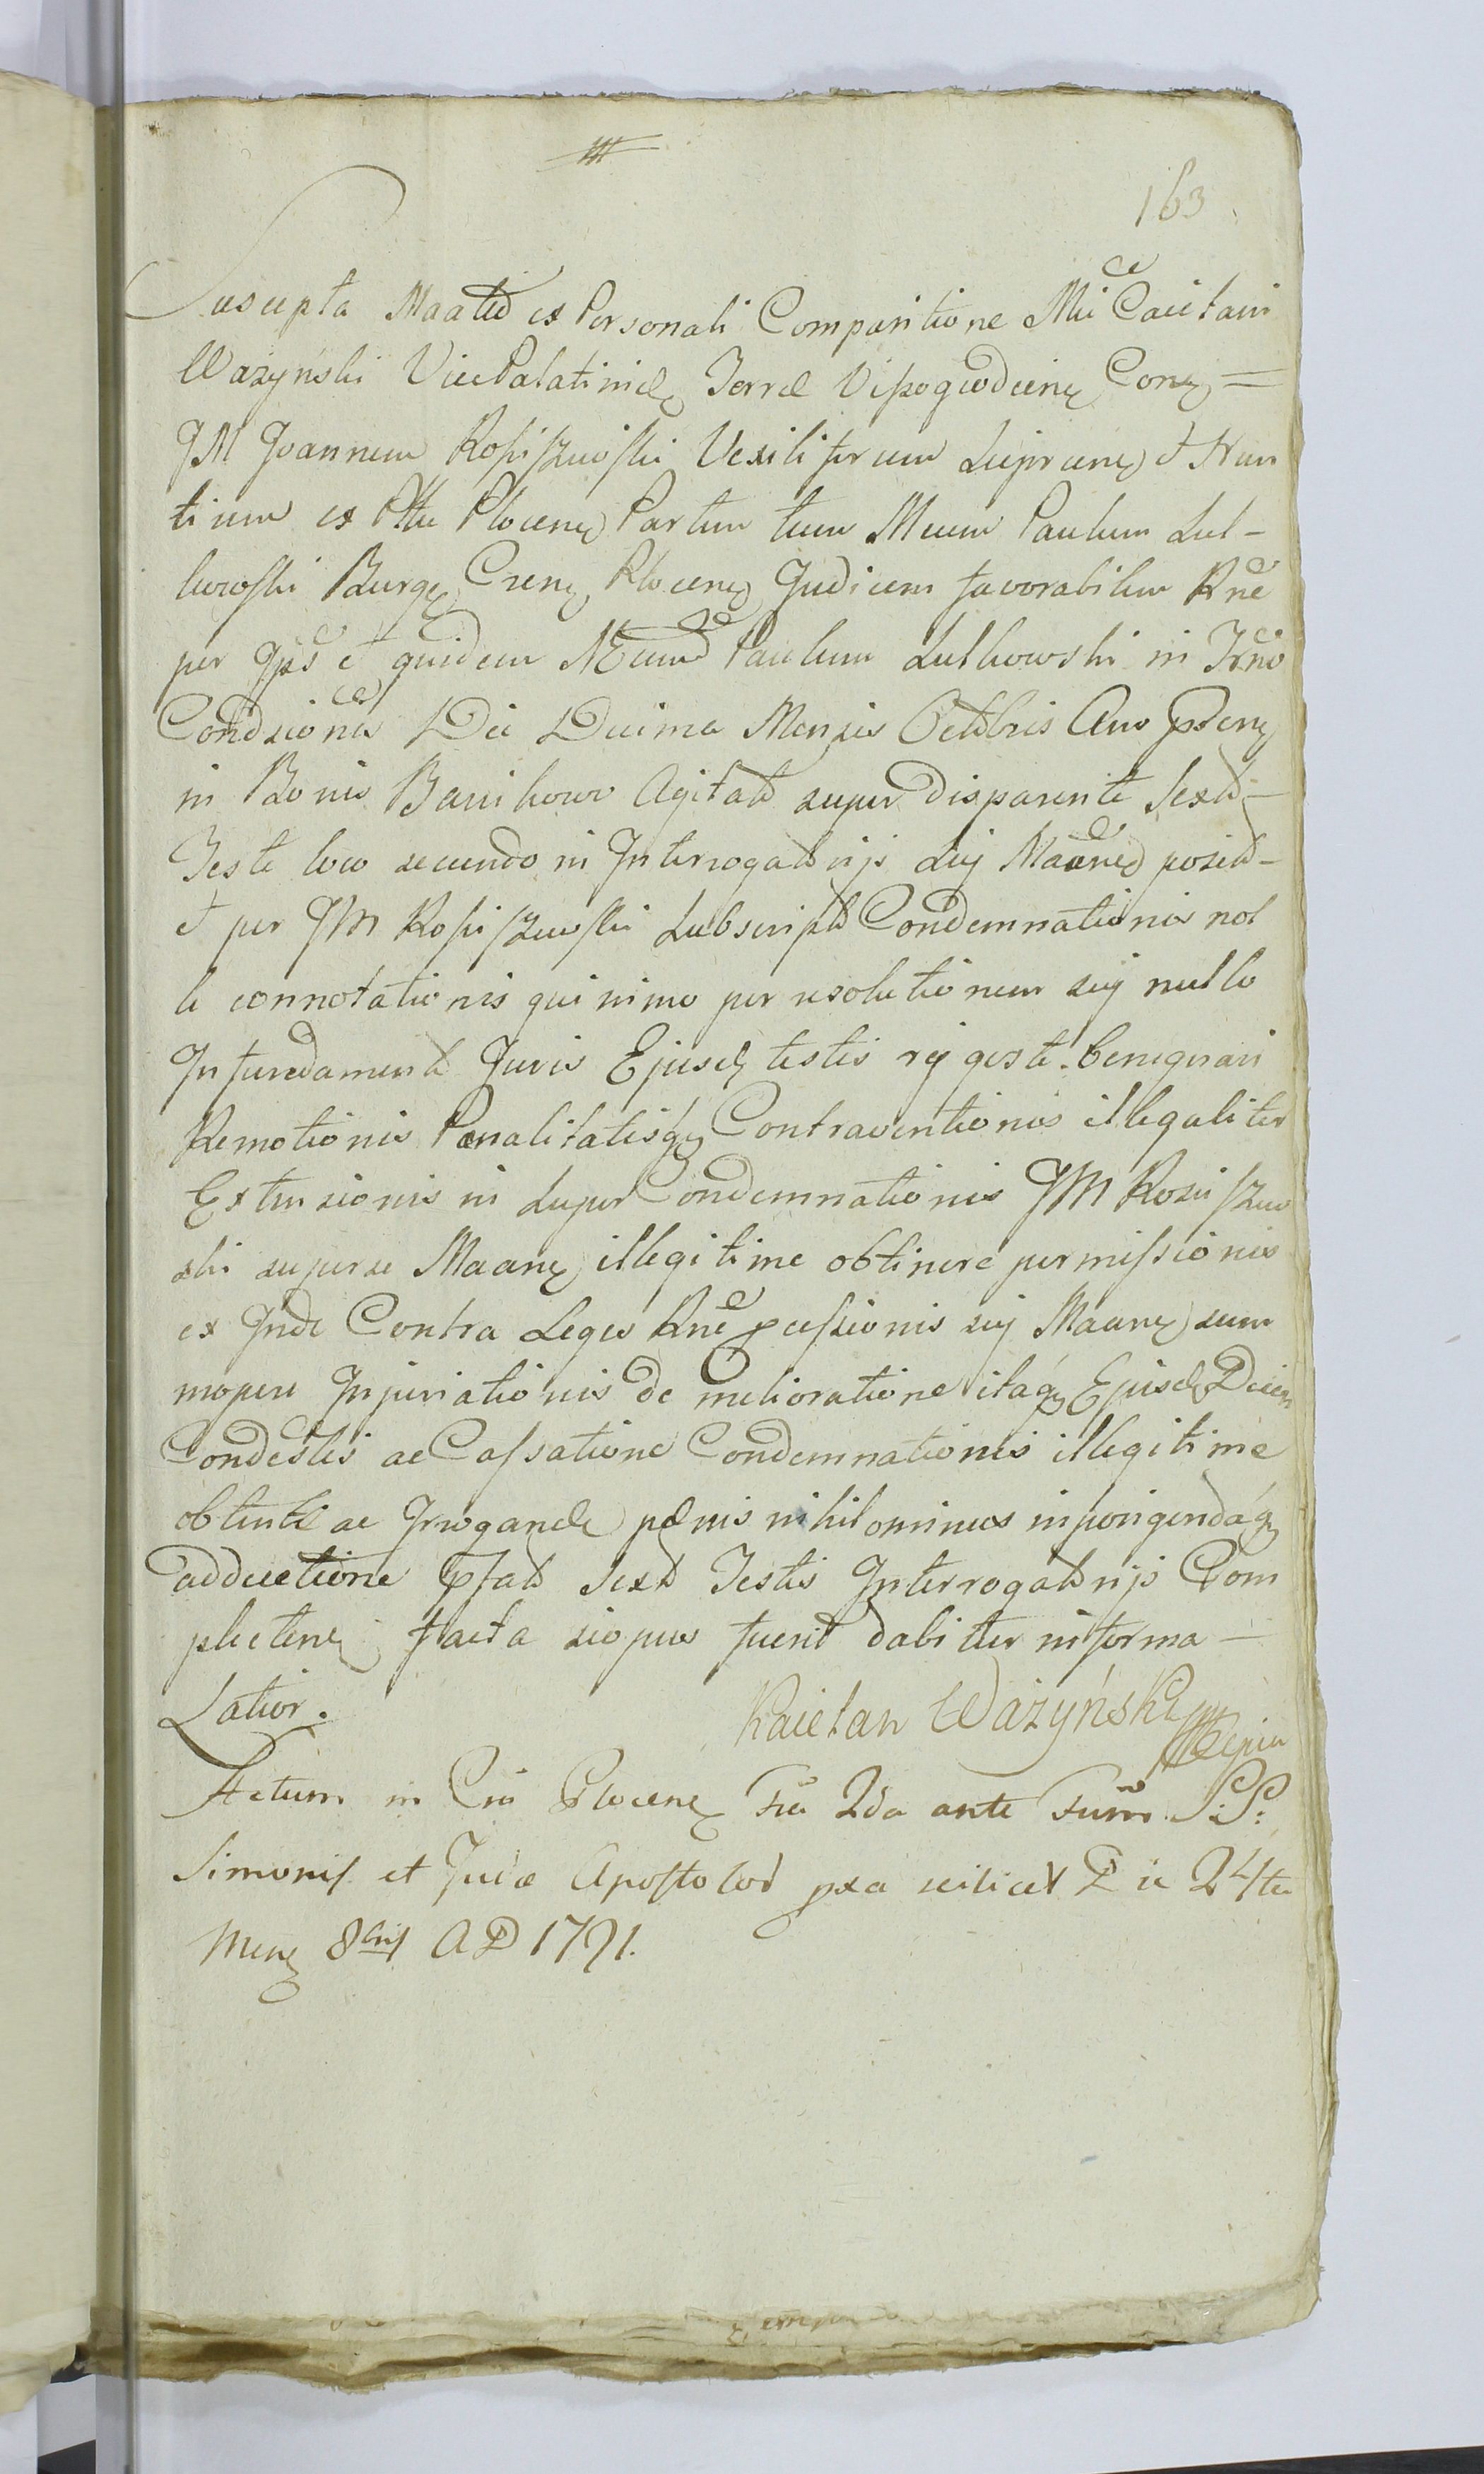 163
Suscepta Maatio ex Personali Comparitione Mci Caietani
Ważyński VicePalatinide Terræ Vissogrodien Con =
JM Joannem Kosciszewski Vexiliferum Sieprcen & Nun
tium ex Pttu Plocen Partem tum Mcum Paulum Lut-
kowski Burg Cren Plocen Judicem favorabilem Rne
per Jps & quidem Mcum Paulum Lutkowski in Trno
Condscionis Die Decima Mensis Octobris Ano psen
in Bonis Barikowo Agitato super disparente Sexto-
Teste loco secundo in Interrogatorijs sui Maane posito-
& per JM Kosciszewski Subscripto Condemnationis nol
le connotationis quinimo per resolutionem suij nullo
Infundamento Juris Ejusd testis rej geste benignari
Remotionis Pœnalitatisq Contraventionis illegaliter
Extensionis in super Condemnationis JM Kosciszew
ski super se Maan illegitime obtinere permissionis
ex Inde Contra Leges Rne pcessionis suij Maan sum
mopere Injuriationis de melioratione itaq Ejusd Dcien
Condestis ac Cassatione Condemnationis illegitime
obtente ac Irrogande pœnis nihilominus inporigendaq
adductione pfato Sexto Testis Interrogatorijs Com
plecten facta siopus fuerit dabitur informa -
Latior.
Kaietan Ważyński mpia
Actum in Cria Plocen Fria 2da ante Festum S:S:
Simonis et Judæ Apostolor pxa scilicet Die 24ta
Mens 8bris A D 1791.